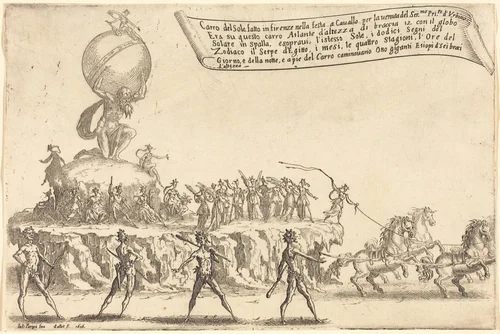 Carro del Sole fatto in firenze nella festa a Cavallo per la venuta del Ser.mo Prī.pe d'Urbino
Era su questo carro Atlante d'altezza di braccia 12. con il globo
Solare in Spalla, e sopravi l'istesso Sole, i dodici Segni del
Zodiaco il Serpe d'Egitto, i mesi, le quattro Stagioni, l'Ore del
Giorno, e della notte, e a pie del Carro camminavano Otto giganti Etiopi d'sei braci
d'altezza
Iuli Parigii Inv.    Callot F. 1616.